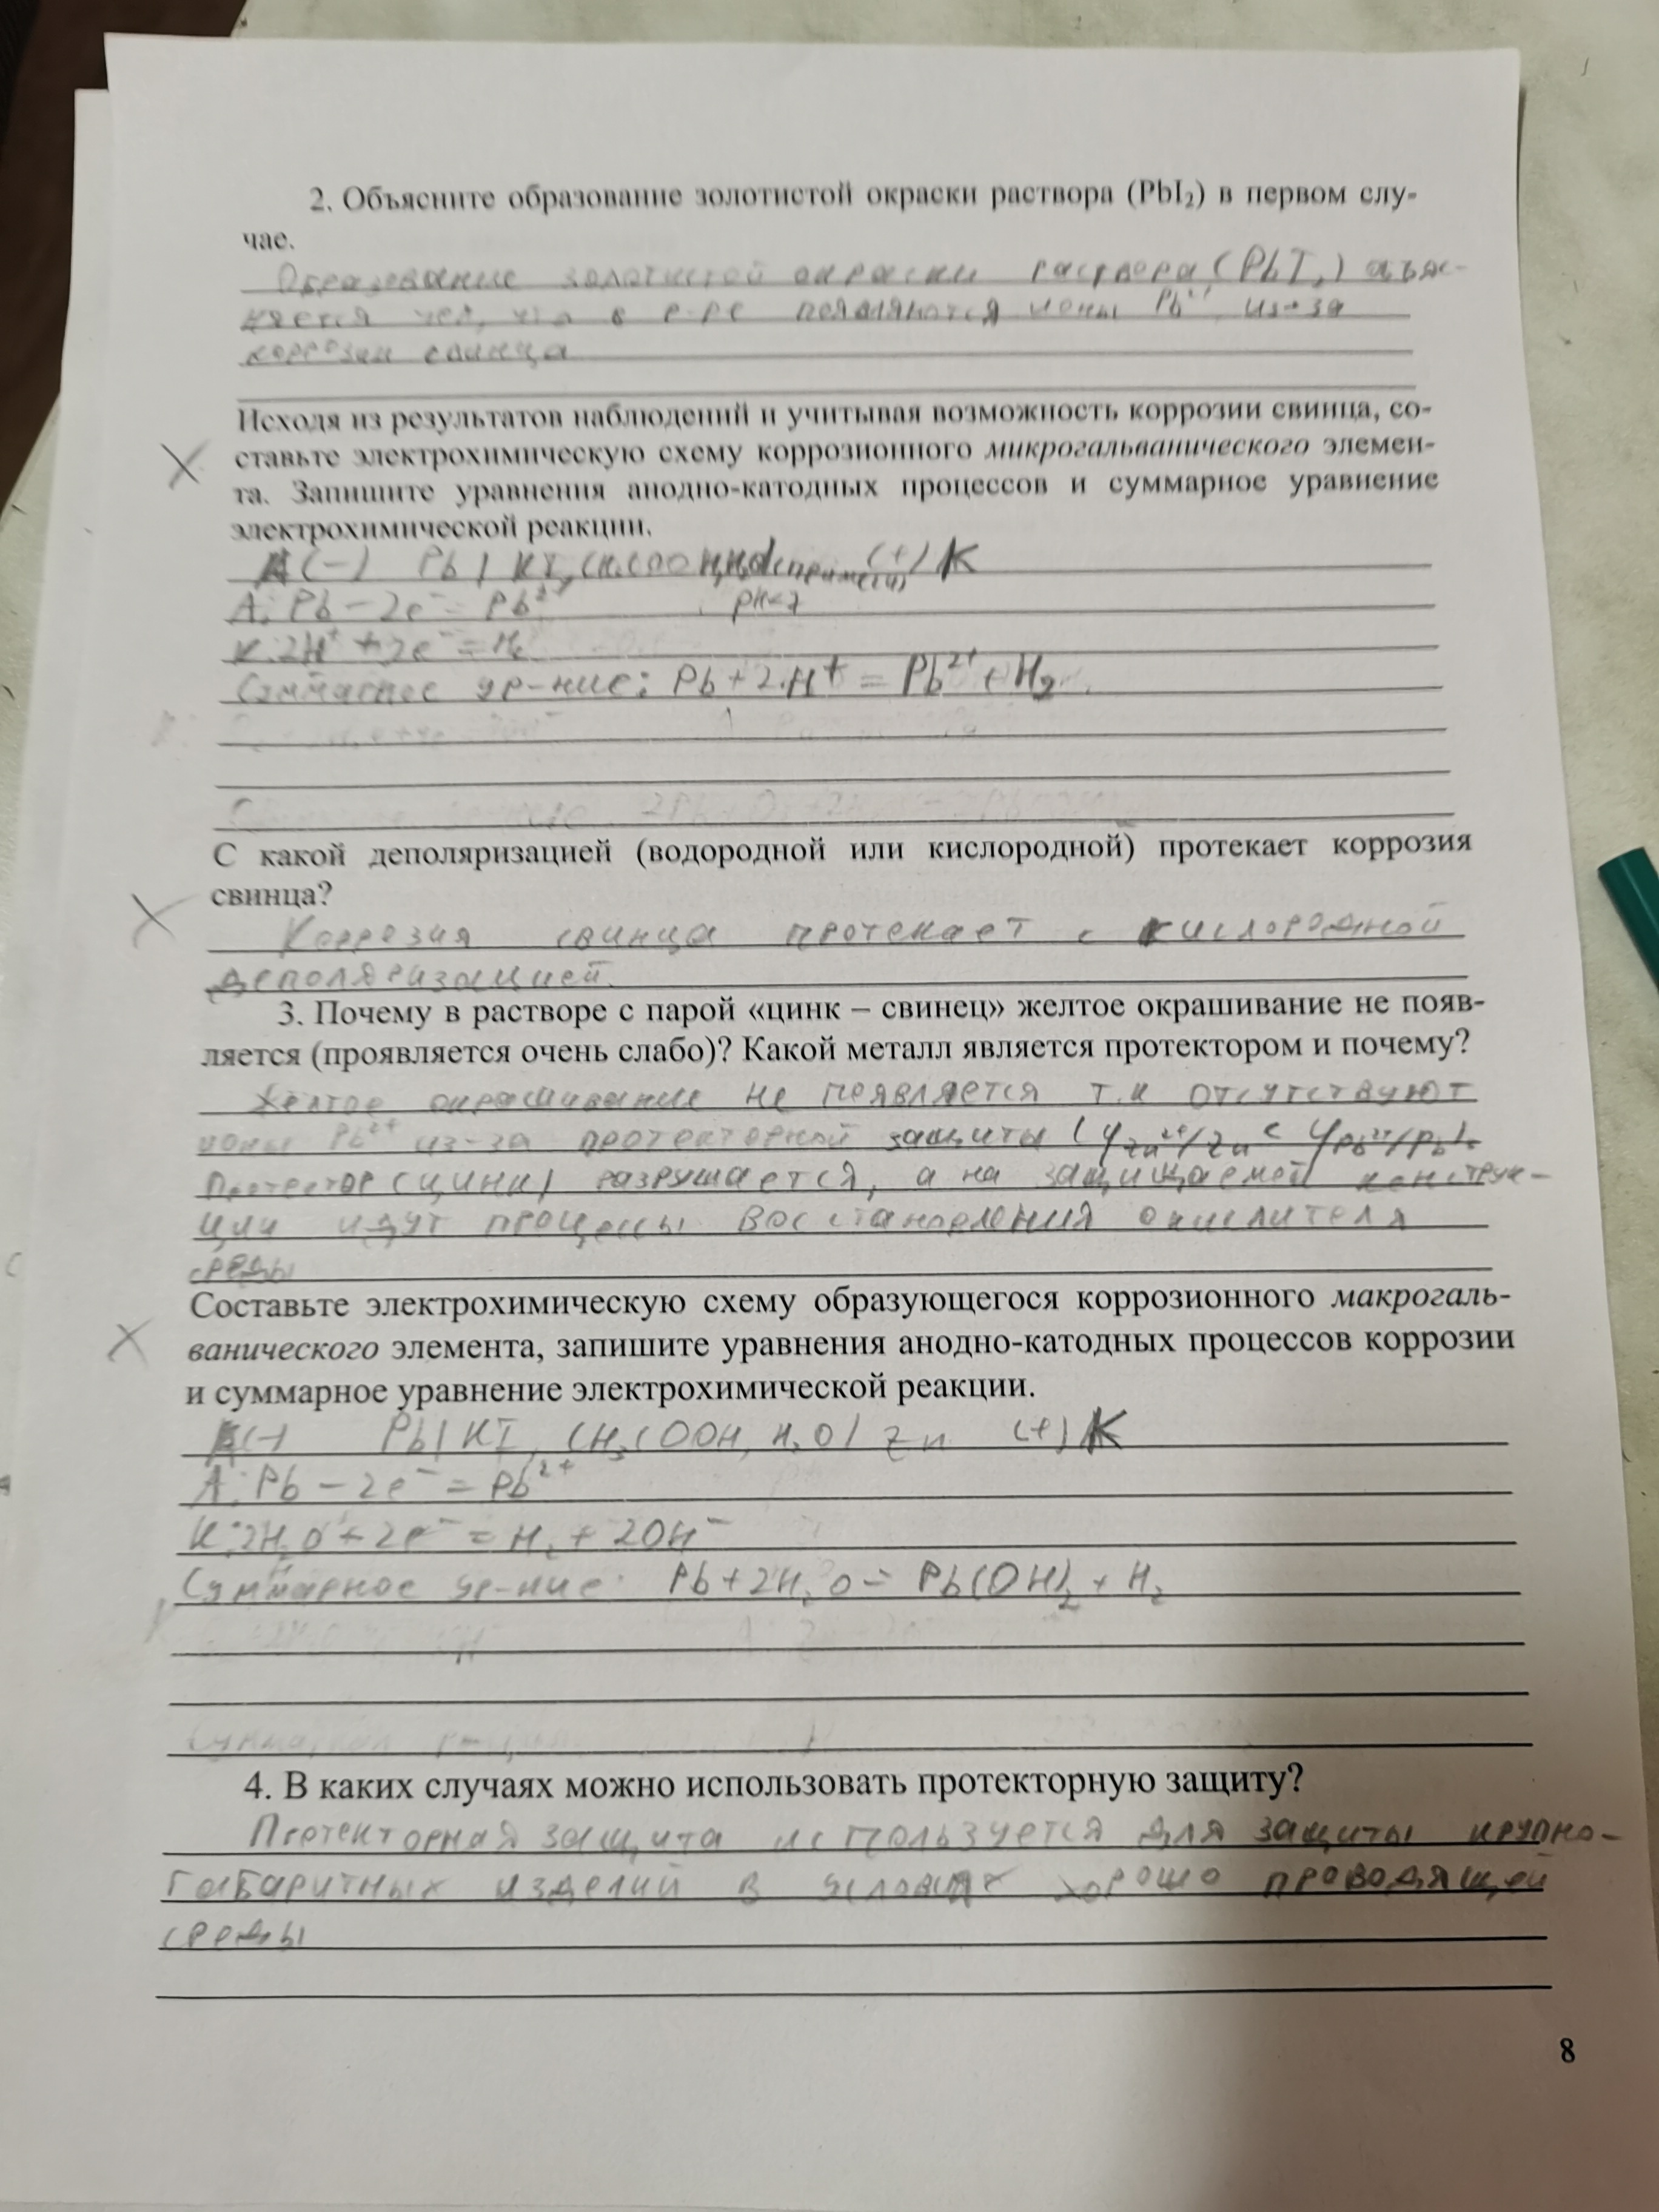 2. Объясните образование золотистой окраски раствора (PbI₂) в первом слу-
чае.
Образование золотистой окраски раствора (PbI₂) объяс-
няется тем, что в р-ре появляются ионы Pb²⁺ из-за
коррозии свинца
Исходя из результатов наблюдений и учитывая возможность коррозии свинца, со-
ставьте электрохимическую схему коррозионного микрогальванического элемен-
та. Запишите уравнения анодно-катодных процессов и суммарное уравнение
электрохимической реакции.
А(-) Pb | KI, CH₃COOH, H₂O (+) К
А: Pb - 2e⁻ = Pb²⁺ pH<7
К: 2H⁺ + 2e⁻ = H₂
Суммарное ур-ние: Pb + 2H⁺ = Pb²⁺ + H₂
С какой деполяризацией (водородной или кислородной) протекает коррозия
свинца?
Коррозия свинца протекает с кислородной
деполяризацией.
3. Почему в растворе с парой «цинк – свинец» желтое окрашивание не появ-
ляется (проявляется очень слабо)? Какой металл является протектором и почему?
Желтое окрашивание не появляется т.к отсутствуют
ионы Pb²⁺ из-за протекторной защиты (φZn²⁺/Zn < φPb²⁺/Pb).
Протектор (цинк) разрушается, а на защищаемой конструк-
ции идут процессы восстановления окислителя
среды
Составьте электрохимическую схему образующегося коррозионного макрогаль-
ванического элемента, запишите уравнения анодно-катодных процессов коррозии
и суммарное уравнение электрохимической реакции.
А(-) Pb | KI, CH₃COOH, H₂O | Zn (+) К
А: Pb - 2e⁻ = Pb²⁺
К: 2H₂O + 2e⁻ = H₂ + 2OH⁻
Суммарное ур-ние: Pb + 2H₂O = Pb(OH)₂ + H₂
4. В каких случаях можно использовать протекторную защиту?
Протекторная защита используется для защиты крупно-
габаритных изделий в условиях хорошо проводящей
среды
8